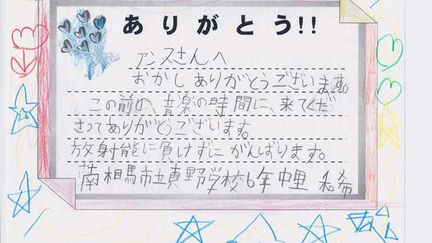 ありがとう!!
アンヌさんへ
おかしありがとうございます。
この前の、音楽の時間に、来てくだ
さってありがとうございます。
放射能に負けずにがんばります。
南相馬市立真野学校6年中里 和希